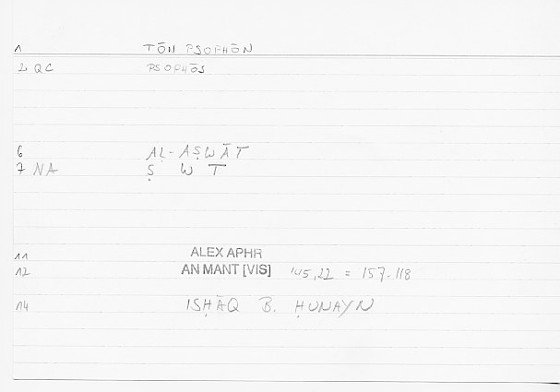 1 TŌN PSOPHŌN
2 QC PSOPHŌS
6 AL-AṢWĀT
7 NA Ṣ W T
11 ALEX APHR
12 AN MANT [VIS] 145,22 = 157.118
14 ISḤĀQ B. ḤUNAYN